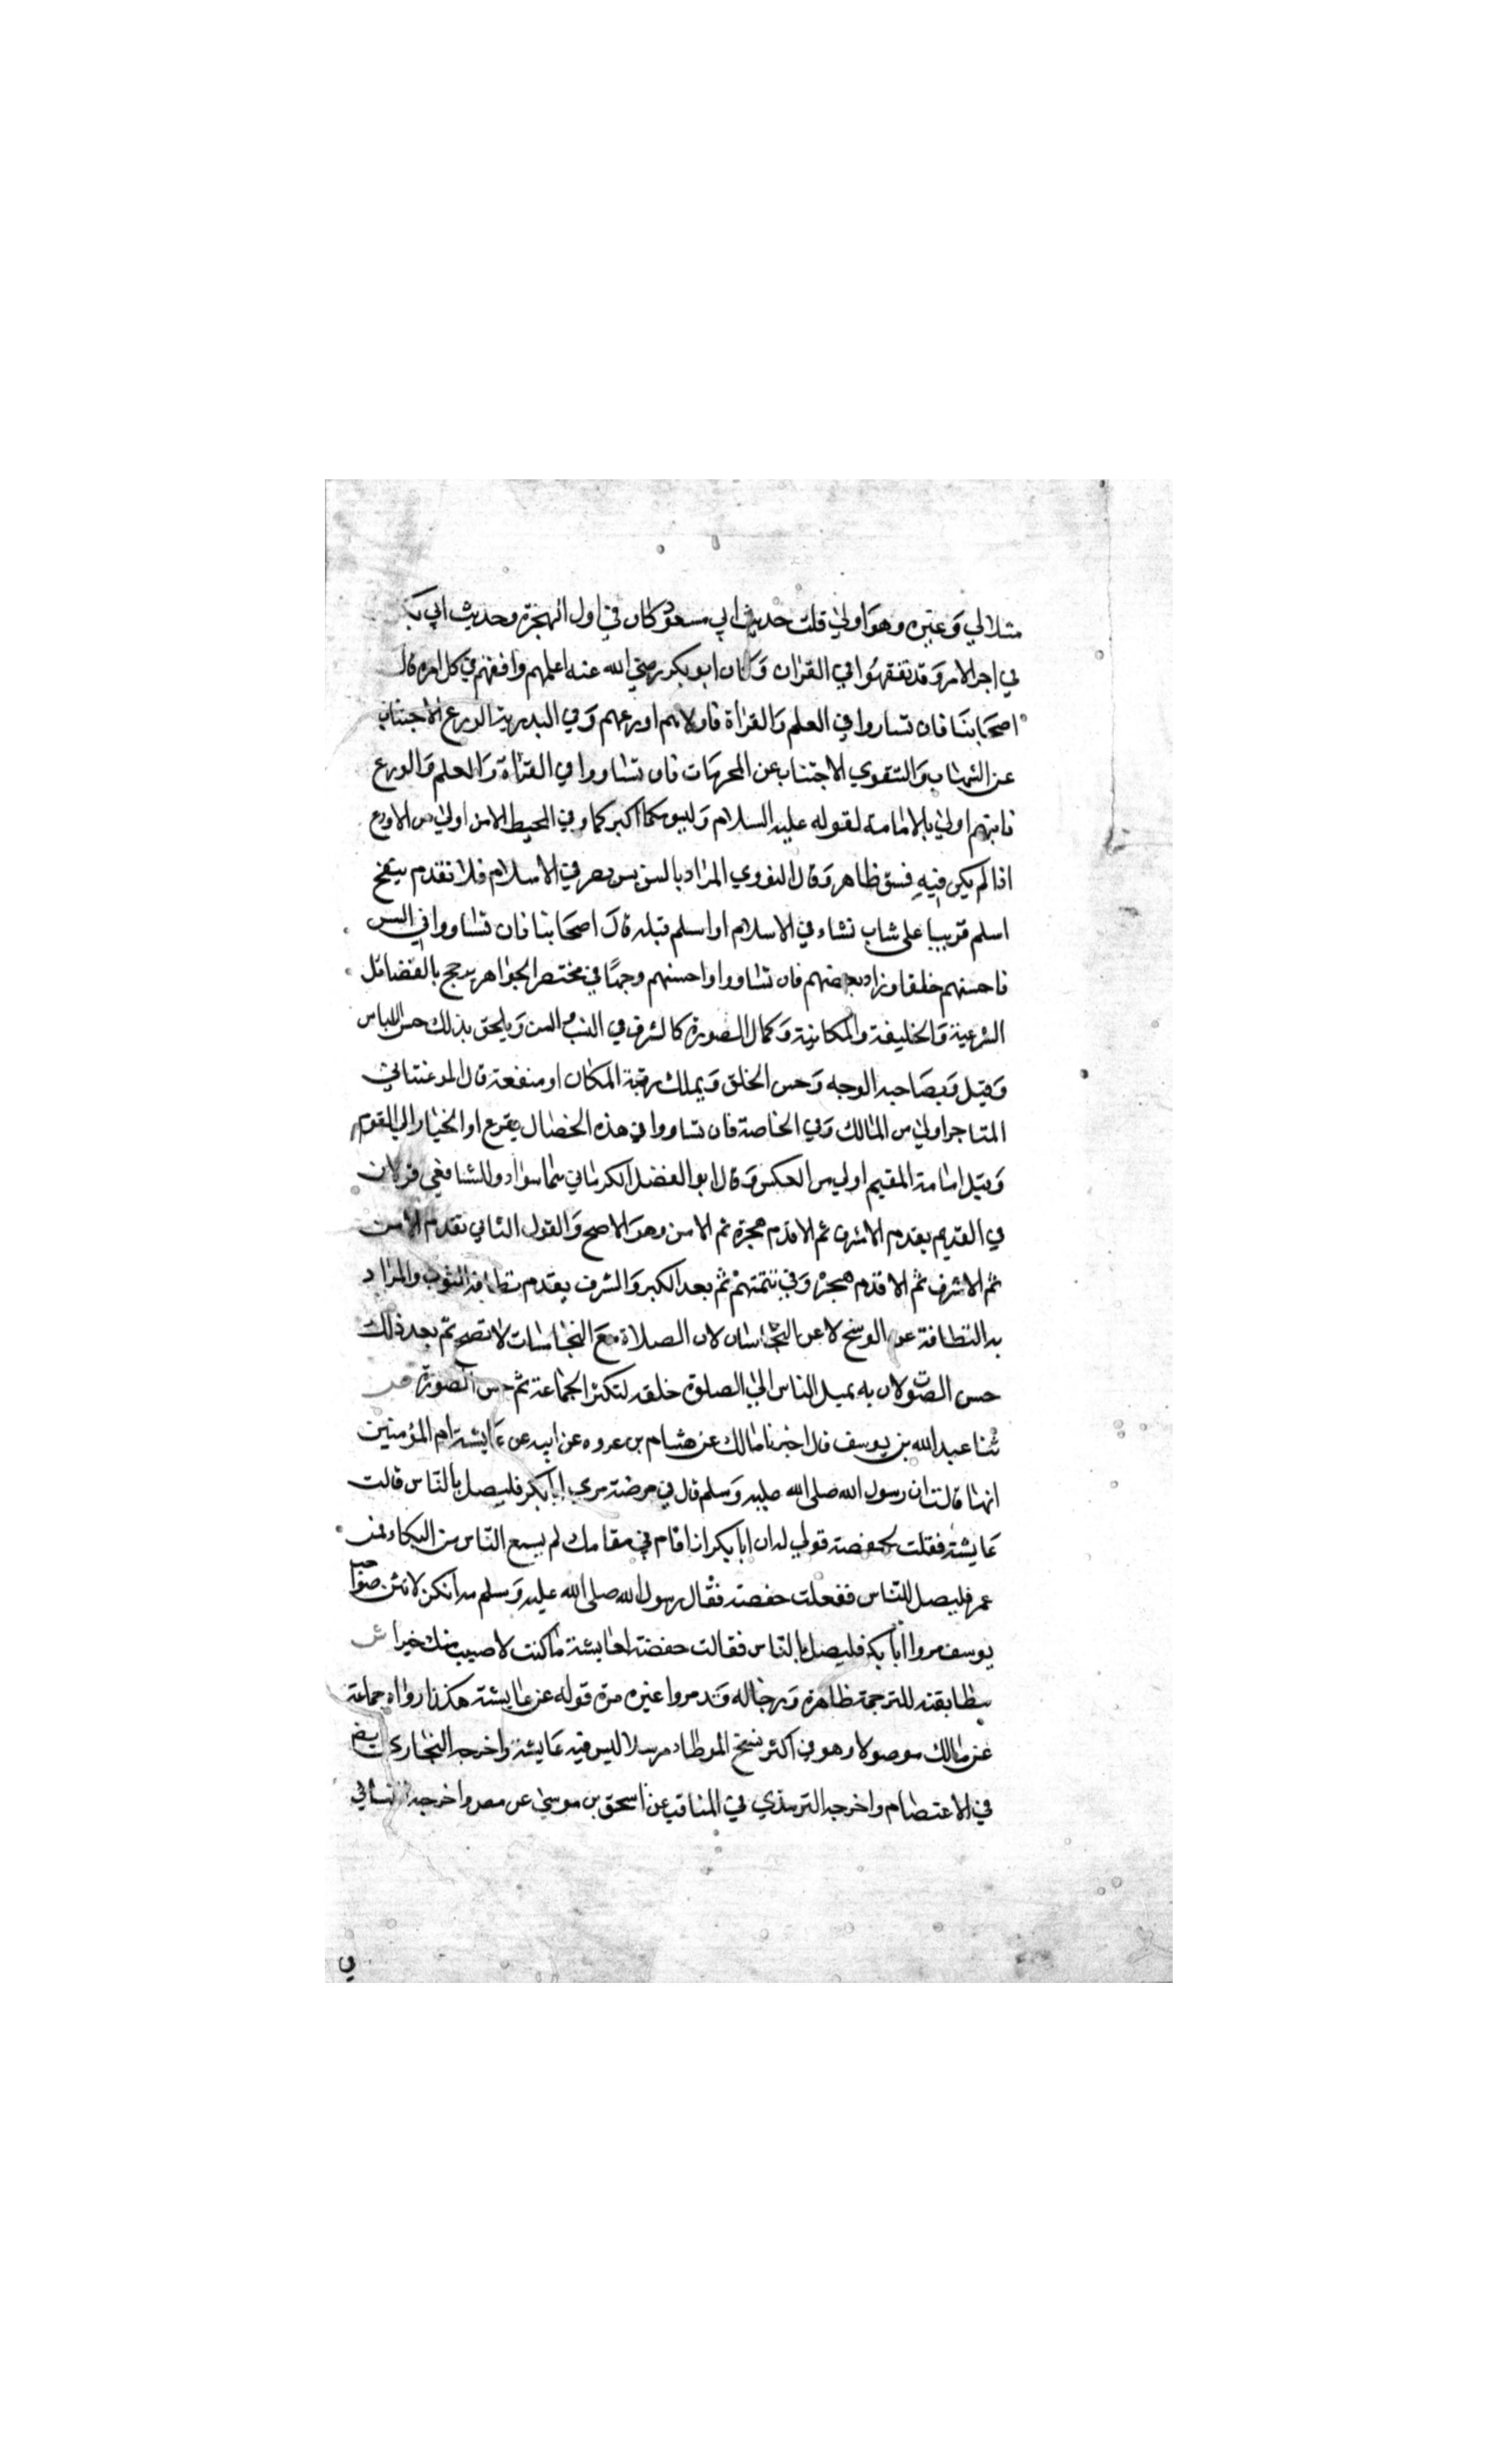 مثلا لي وغيره وهو اولي قلت حديث ابي مسعود كان في اول الهجرة وحديث ابي بكر
في اخر الامر وقد تفقهوا في القران وكان ابو بكر رضي الله عنه اعلمهم وافقهم في كل امره قال
اصحابنا فان تساووا في العلم والقراة فاولاهم اورعهم وفي البدرية الورع الاجتناب
عن الشبهات والتقوي الاجتناب عن المحرمات فان تساووا في القراة والعلم والورع
فاسنهم اولي بالامامة لقوله عليه السلام وليومكما اكبركما وفي المحيط الاسن اولي من الاورع
اذا لم يكن فيه فسق ظاهر وقال النووي المراد بالسن سن مضي في الاسلام فلا تقدم شيخ
اسلم قريبا على شاب نشاء في الاسلام او اسلم قبله قال اصحابنا فان تساووا في السن
فاحسنهم خلقا وزاد بعضهم فان تساووا واحسنهم وجها في مختصر الجواهر يرجح بالفضائل
الشرعية والخليفة والمكانية وكمال الصورة كالشرف في النسب والسن ويلحق بذلك حسن اللباس
وقيل وبصاحبه الوجه وحسن الخلق ويملك رقبة المكان او منفعته قال المرغيناني
المتاجر اولي من المالك وفي الخاصة فان تساووا في هذه الخصال يقرع او الخيار الي القوم
وقيل امامة المقيم اولي من العكس وقال ابو الفضل الكرماني هما سواء وللشافعي قولان
في القديم يقدم الاشرف ثم الاقدم هجرة ثم الاسن وهو الاصح والقول الثاني تقدم الاسن
ثم الاشرف ثم الاقدم هجرة وفي تتمتهم ثم بعد الكبر والشرف يقدم نظافة الثوب والمراد
به النظافة عن الوسخ لا عن النجاسات لان الصلاة مع النجاسات لا تصح ثم بعد ذلك
حسن الصوت لان به يميل الناس الي الصلوة خلفه لتكثر الجماعة ثم حسن الصورة
ثنا عبد الله بن يوسف قال اخبرنا مالك عن هشام بن عروه عن ابيه عن عايشة ام المؤمنين
انها قالت ان رسول الله صلى الله عليه وسلم قال في مرضه مري ابا بكر فليصل بالناس قالت
عايشة فقلت لحفصة قولي له ان ابا بكر اذا قام في مقامك لم يسمع الناس من البكاء فمر
عمر فليصل للناس ففعلت حفصة فقال رسول الله صلى الله عليه وسلم مه انكن لانتن صواحب
يوسف مروا ابا بكر فليصل بالناس فقالت حفصة لعايشة ما كنت لاصيب منك خيرا ش
مطابقته للترجمة ظاهرة ورجاله قد مروا غير مرة قوله عن عايشة هكذا رواه جماعة
عن مالك موصولا وهو في اكثر نسخ الموطا مرسلا ليس فيه عايشة واخرجه البخاري ايضا
في الاعتصام واخرجه الترمذي في المناقب عن اسحق بن موسي عن معن واخرجه النسائي
في